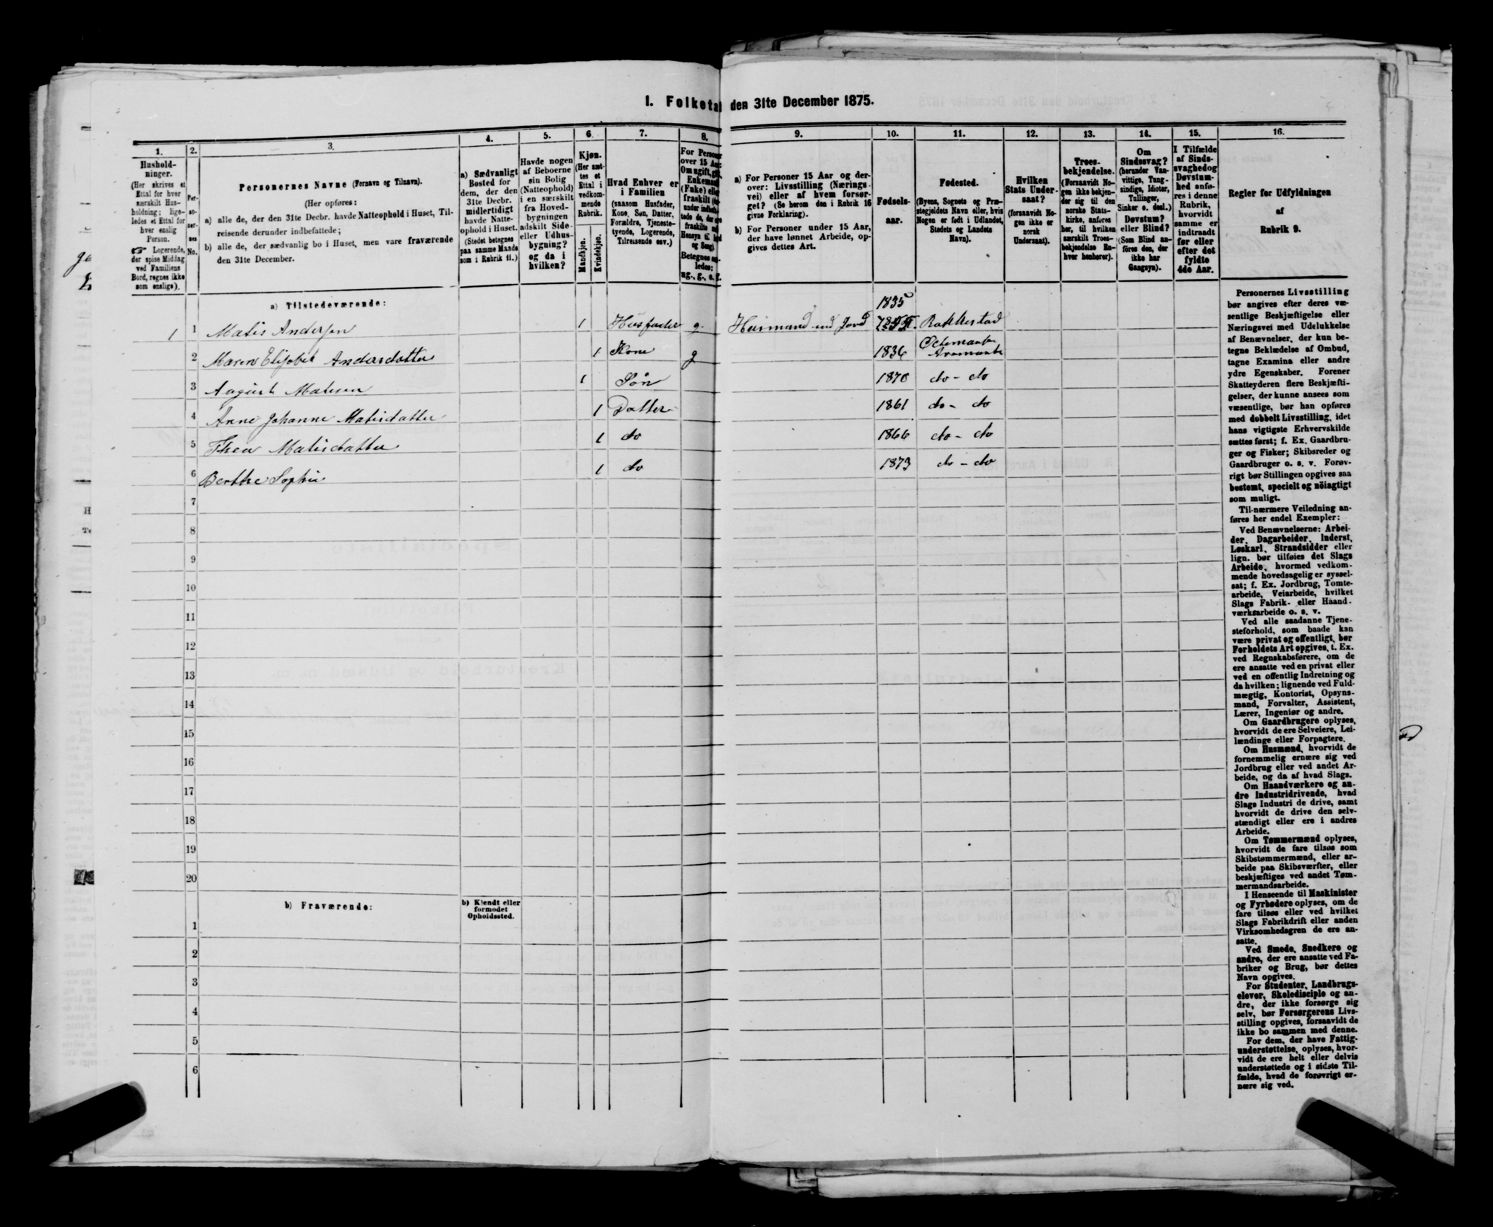 I. Folketal den 31te December 1875.
1.
Hushold-
ninger.
(Her skrives et
Ettal for hver
særskilt Hus-
holdning; lige-
ledes et Ettal for
hver enslig
Person.
Logerende,
der spise Middag
ved Familiens
Bord, regnes ikke
som enslige).
2.
Per-
so-
ner-
nes
No.
3.
Personernes Navne (Fornavn og Tilnavn).
(Her opføres:
a) alle de, der den 31te Decbr. havde Natteophold i Huset, Til-
reisende derunder indbefattede;
b) alle de, der sædvanlig bo i Huset, men vare fraværende
den 31te December.
4.
a) Sædvanligt
Bosted for
dem, der den
31te Decbr.
midlertidigt
havde Natte-
ophold i Huset.
(Stedet betegnes
paa samme Maade
som i Rubrik 11.)
5.
Havde nogen
af Beboerne
sin Bolig
(Natteophold)
i en særskilt
fra Hoved-
bygningen
adskilt Side-
eller Udhus-
bygning?
og da i
hvilken?
6.
Kjøn.
(Her sæt-
tes et
Ettal i
vedkom-
mende
Rubrik.
Mandkjøn.
Kvindekjøn.
7.
Hvad Enhver er
i Familien
(saasom Husfader,
Kone, Søn, Datter,
Forældre, Tjeneste-
tyende, Logerende,
Tilreisende osv.)
8.
For Personer
over 15 Aar:
9.
a) For Personer 15 Aar og der-
over: Livsstilling (Nærings-
vei) eller af hvem forsør-
get? (Se herom den i Rubrik 16
givne Forklaring).
b) For Personer under 15 Aar,
der have lønnet Arbeide, op-
gives dettes Art.
10.
Fødsels-
aar.
11.
Fødested.
(Byens, Sognets og Præ-
stegjeldets Navn eller, hvis
Nogen er født i Udlandet,
Stedets og Landets
Navn).
12.
Hvilken
Stats Under-
saat?
(forsaavidt No-
gen ikke er
norsk
Undersaat).
13.
Troes-
bekjendelse.
(Forsaavidt No-
gen ikke bekjen-
der sig til den
norske Stats-
kirke, anføres
her, til hvilken
særskilt Troes-
bekjendelse En-
hver henhører).
14.
Om
Sindssvag?
(herunder Van-
vittige, Tung-
sindige, Idioter,
Tullinger,
Sinker o. desl.)
Døvstum?
eller Blind?
(Som Blind an-
føres den, der
ikke har
Gangsyn).
15.
I Tilfælde
af Sinds-
svaghed og
Døvstum-
hed anfø-
res i denne
Rubrik,
hvorvidt
samme er
indtraadt
før eller
efter det
fyldte
4de Aar.
16.
Regler for Udfyldningen
af
Rubrik 9.
a) Tilstedeværende:
1 1 Matis Andersen 1 Husfader g. Husmand med Jord 1835 Rakkestad
2 Maren Andersdatter 1 Kone g 1836
3 August Matisen 1 Søn 1870 do - do
4 Anne Johanne Matisdatter 1 Datter 1861 do - do
5 Thea Matisdatter 1 do 1866 do - do
6 Berthe Sophie 1 do 1873 do - do
7
8
9
10
11
12
13
14
15
16
17
18
19
20
b) Fraværende:
b) Kjendt eller
formodet
Opholdssted.
1
2
3
4
5
6
Personernes Livsstilling
bør angives efter deres væ-
sentlige Beskjæftigelse eller
Næringsvei med Udelukkelse
af Benævnelser, der kun be-
tegne Beklædelse af Ombud,
tagne Examina eller andre
ydre Egenskaber. Forener
Skatteyderen flere Beskjæfti-
gelser, der kunne ansees som
væsentlige, bør han opføres
med dobbelt Livsstilling, idet
hans vigtigste Erhvervskilde
sættes først; f. Ex. Gaardbru-
ger og Fisker; Skibsreder og
Gaardbruger o. s. v. Forøv-
rigt bør Stillingen opgives saa
bestemt, specielt og nöiagtigt
som muligt.
Til nærmere Veiledning an-
føres her endel Exempler:
Ved Benævnelserne: Arbei-
der, Dagarbeider, Inderst,
Løskarl, Strandsidder eller
lign. bør tilføies det Slags
Arbeide, hvormed vedkom-
mende hovedsagelig er syssel-
sat; f. Ex. Jordbrug, Tomte-
arbeide, Veiarbeide, hvilket
Slags Fabrik- eller Haand-
værksarbeide o. s. v.
Ved alle saadanne Tjene-
steforhold, som baade kan
være privat og offentligt, bør
Forholdets Art opgives, t. Ex.
ved Regnskabsførere, om de
ere ansatte ved en privat eller
ved en offentlig Indretning og
da hvilken; lignende ved Fuld-
mægtig, Kontorist, Opsyns-
mand, Forvalter, Assistent,
Lærer, Ingeniør og andre.
Om Gaardbrugere oplyses,
hvorvidt de ere Selveiere, Lei-
lændinge eller Forpagtere.
Om Husmænd, hvorvidt de
fornemmelig ernære sig ved
Jordbrug eller ved andet Ar-
beide, og da af hvad Slags.
Om Haandværkere og an-
dre Industridrivende, hvad
Slags Industri de drive, samt
hvorvidt de drive den selv-
stændigt eller ere i andres
Arbeide.
Om Tømmermænd oplyses,
hvorvidt de fare tilsøs som
Skibstømmermænd, eller ar-
beide paa Skibsværfter, eller
beskjæftiges ved andet Tøm-
mermandsarbeide.
I Henseende til Maskinister
og Fyrbødere oplyses, om de
fare tilsøs eller ved hvilket
Slags Fabrikdrift eller anden
Virksomhedsgren de ere an-
satte.
Ved Smede, Snedkere og
andre, der ere ansatte ved Fa-
briker og Brug, bør dettes
Navn opgives.
For Studenter, Landbrugs-
elever, Skoledisciple og an-
dre, der ikke forsørge sig
selv, bør Forsørgerens Livs-
stilling opgives, forsaavidt de
ikke bo sammen med denne.
For dem, der have Fattig-
understøttelse, oplyses, hvor-
vidt de ere helt eller delvis
understøttede og i sidste Til-
fælde, hvad de forøvrigt er-
nære sig ved.